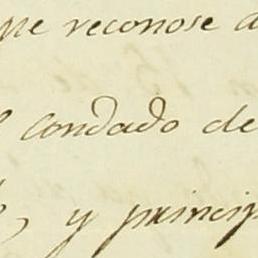 que reconose a
l Condado de
, y princip